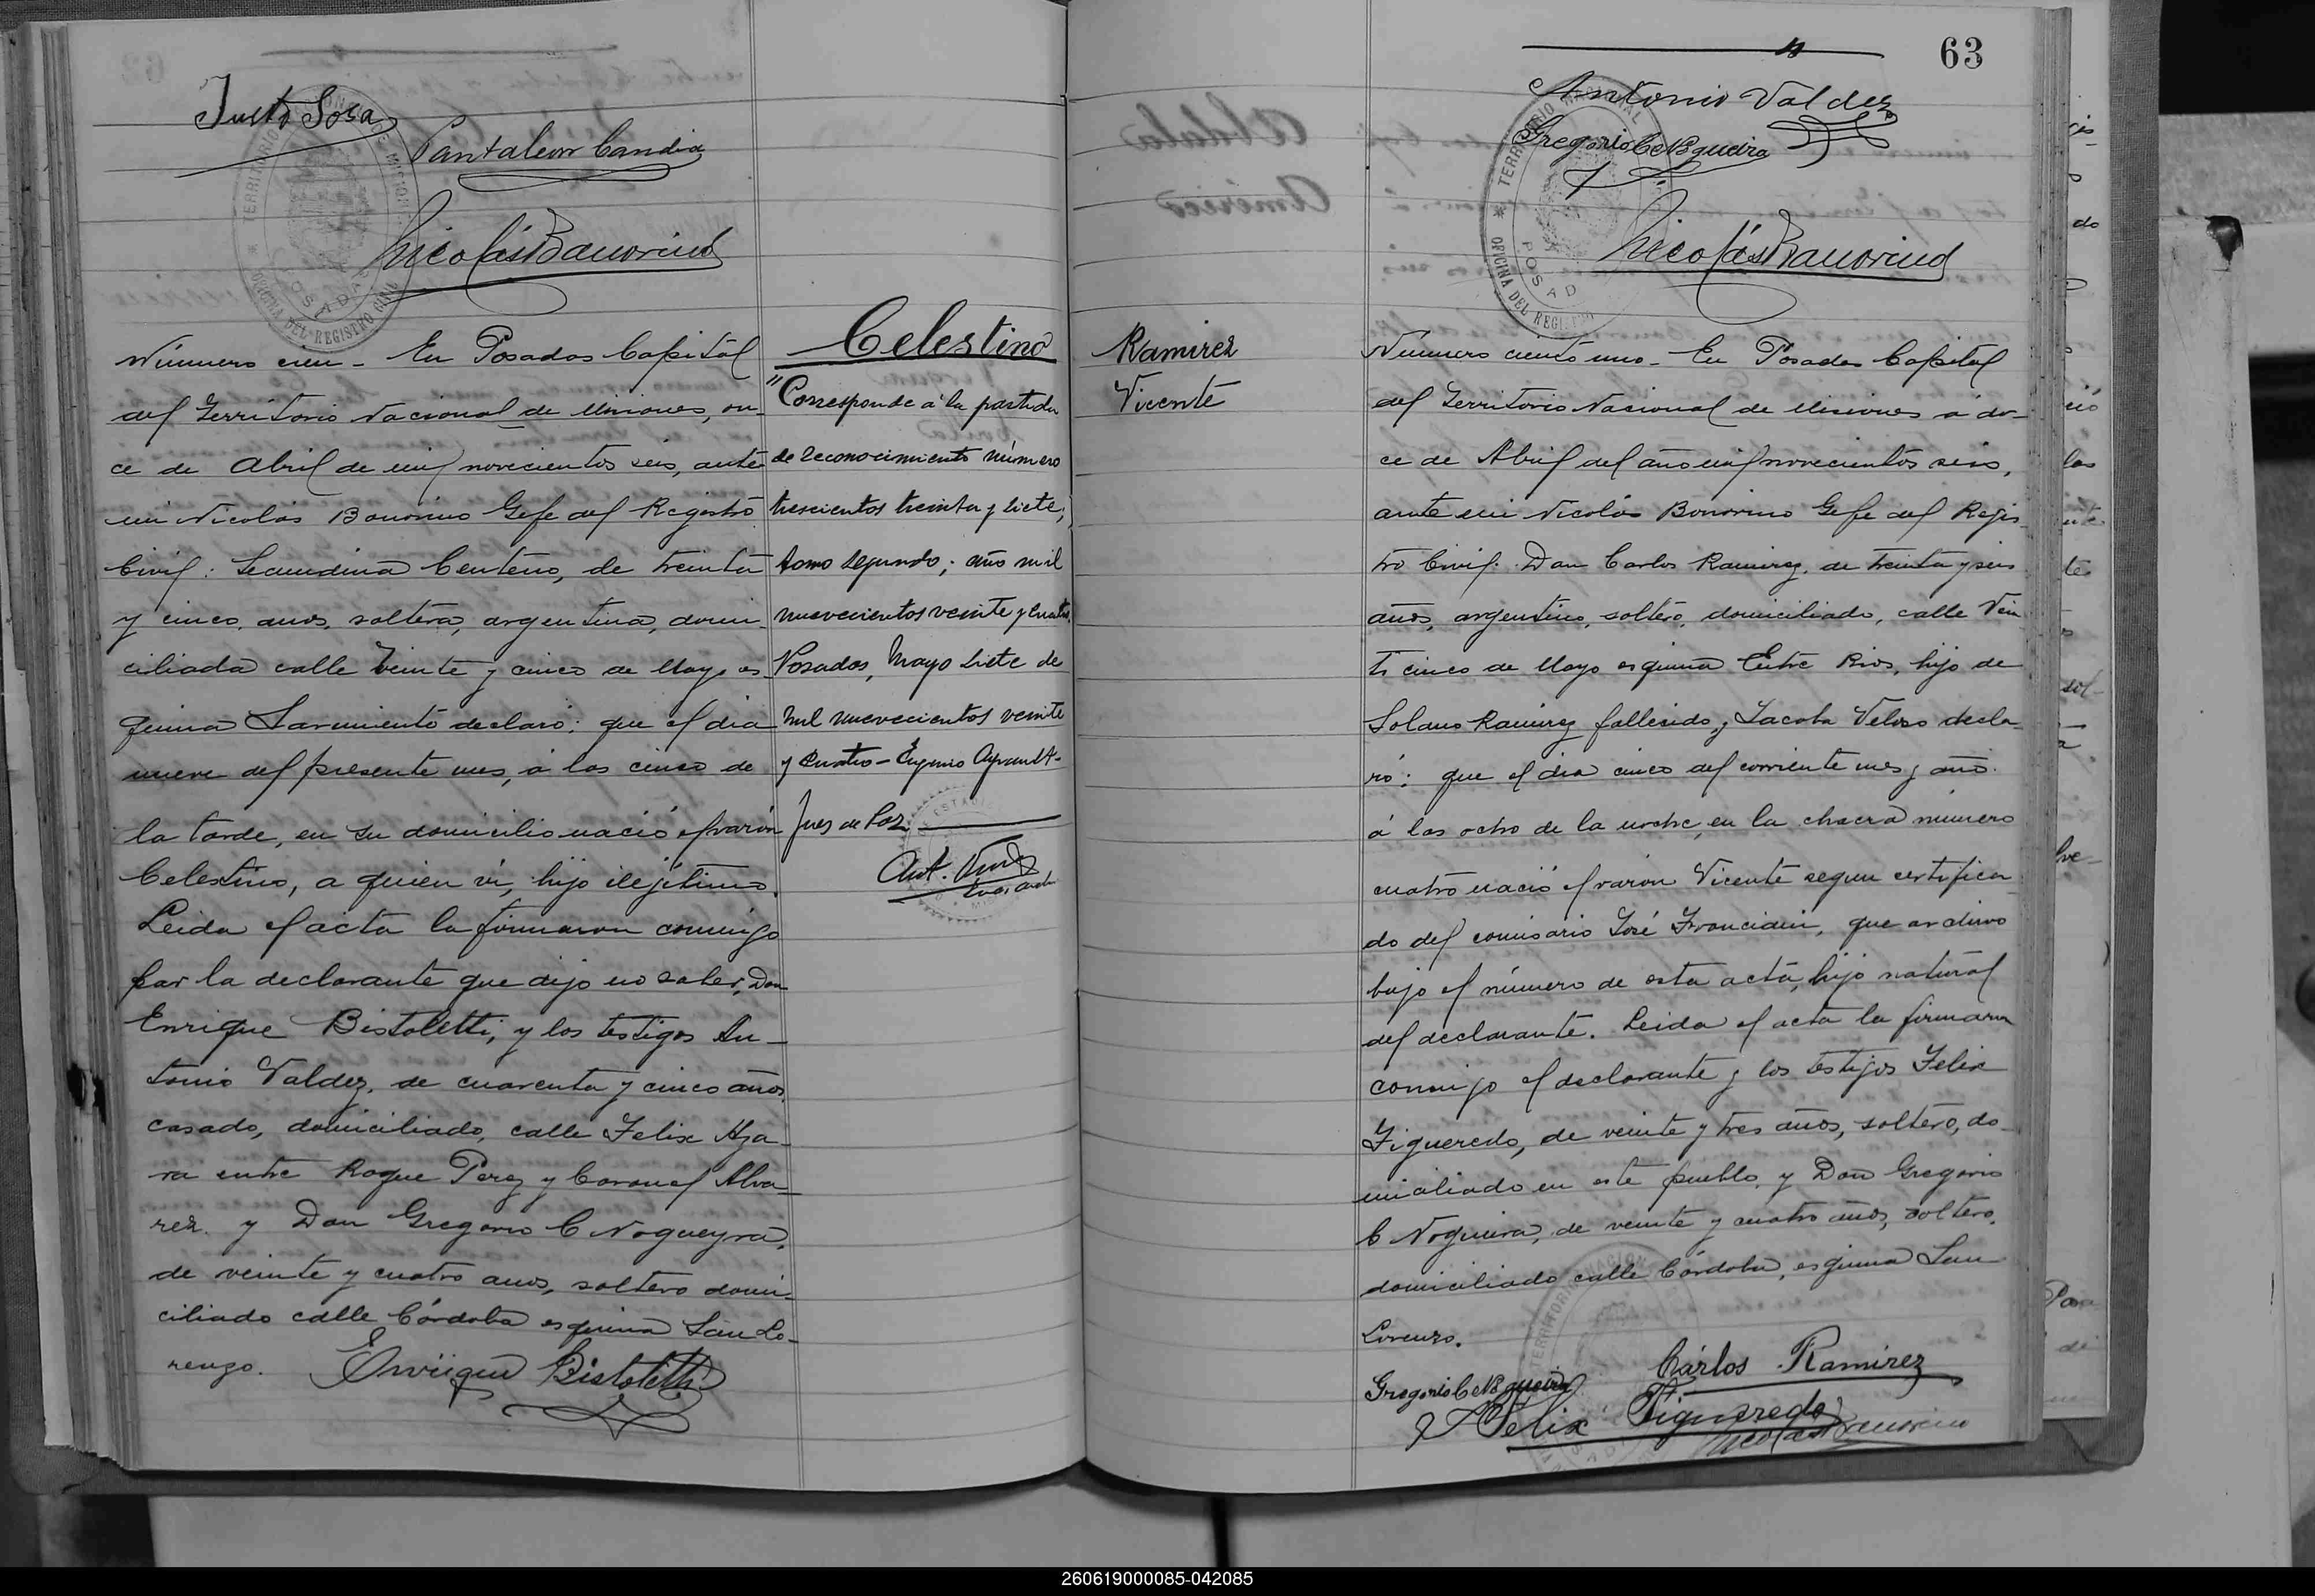 Justo Sosa
Pantaleon Candia
Nicolás Bonorino
Número cien - En Posadas Capital
del Territorio Nacional de Misiones, on-
ce de Abril de mil novecientos seis, ante
mi Nicolás Bonorino Gefe del Registro
Civil: Secundina Centeno, de treinta
y cinco años, soltera, argentina, domi-
ciliada calle Veinte y cinco de Mayo es-
quina Sarmiento declaró: que el dia
nueve del presente mes, á las cinco de
la tarde, en su domicilio nació el varón
Celestino, a quien vi, hijo ilejítimo.
Leida el acta la firmaron conmigo
por la declarante que dijo no saber, Don
Enrique Bistoletti, y los testigos An-
tonio Valdez, de cuarenta y cinco años,
casado, domiciliado, calle Felix Aza-
ra entre Roque Perez y Coronel Alva-
rez. y Don Gregorio C Nogueyra,
de veinte y cuatro anos, soltero domi-
ciliado calle Córdoba esquina San Lo-
renzo.
Enrique Bistoletti
Celestino
"Corresponde á la partida
de reconocimiento número
trescientos treinta y siete;
tomo segundo; año mil
nuevecientos veinte y cuatro.
Posadas, Mayo siete de
mil nuevecientos veinte
y cuatro - Eugenio
Juez de Paz
63
Antonio Valdez
Gregorio C Nogueira
Nicolás Bonorino
TERRITORIO NACIONAL
POSAD
OFICINA DEL REGISTRO
Ramirez
Vicente
Número ciento uno - En Posadas Capital
del Territorio Nacional de Misiones a do-
ce de Abril del año mil novecientos seis,
ante mi Nicolás Bonorino Gefe del Regis-
tro Civil. Don Carlos Ramirez, de treinta y seis
años, argentino, soltero, domiciliado, calle Vein
ti cinco de Mayo esquina Entre Rios, hijo de
Solano Ramirez fallecido, y Jacoba Veloso decla-
ró: que el dia cinco del corriente mes y año.
á las ocho de la noche, en la chacra número
cuatro nació el varon Vicente segun certifica
do del comisario José, que archivo
bajo el número de esta acta, hijo natural
del declarante. Leida el acta la firmaron
conmigo el declarante y los testigos Felix
Figueredo, de veinte y tres años, soltero, do-
miciliado en este pueblo, y Don Gregorio
C Nogueira, de veinte y cuatro años, soltero,
domiciliado calle Córdoba, esquina San
Lorenzo.
Carlos Ramirez
Gregorio C Nogueira
Felix Figueredo
Nicolás Bonorino
260619000085-042085